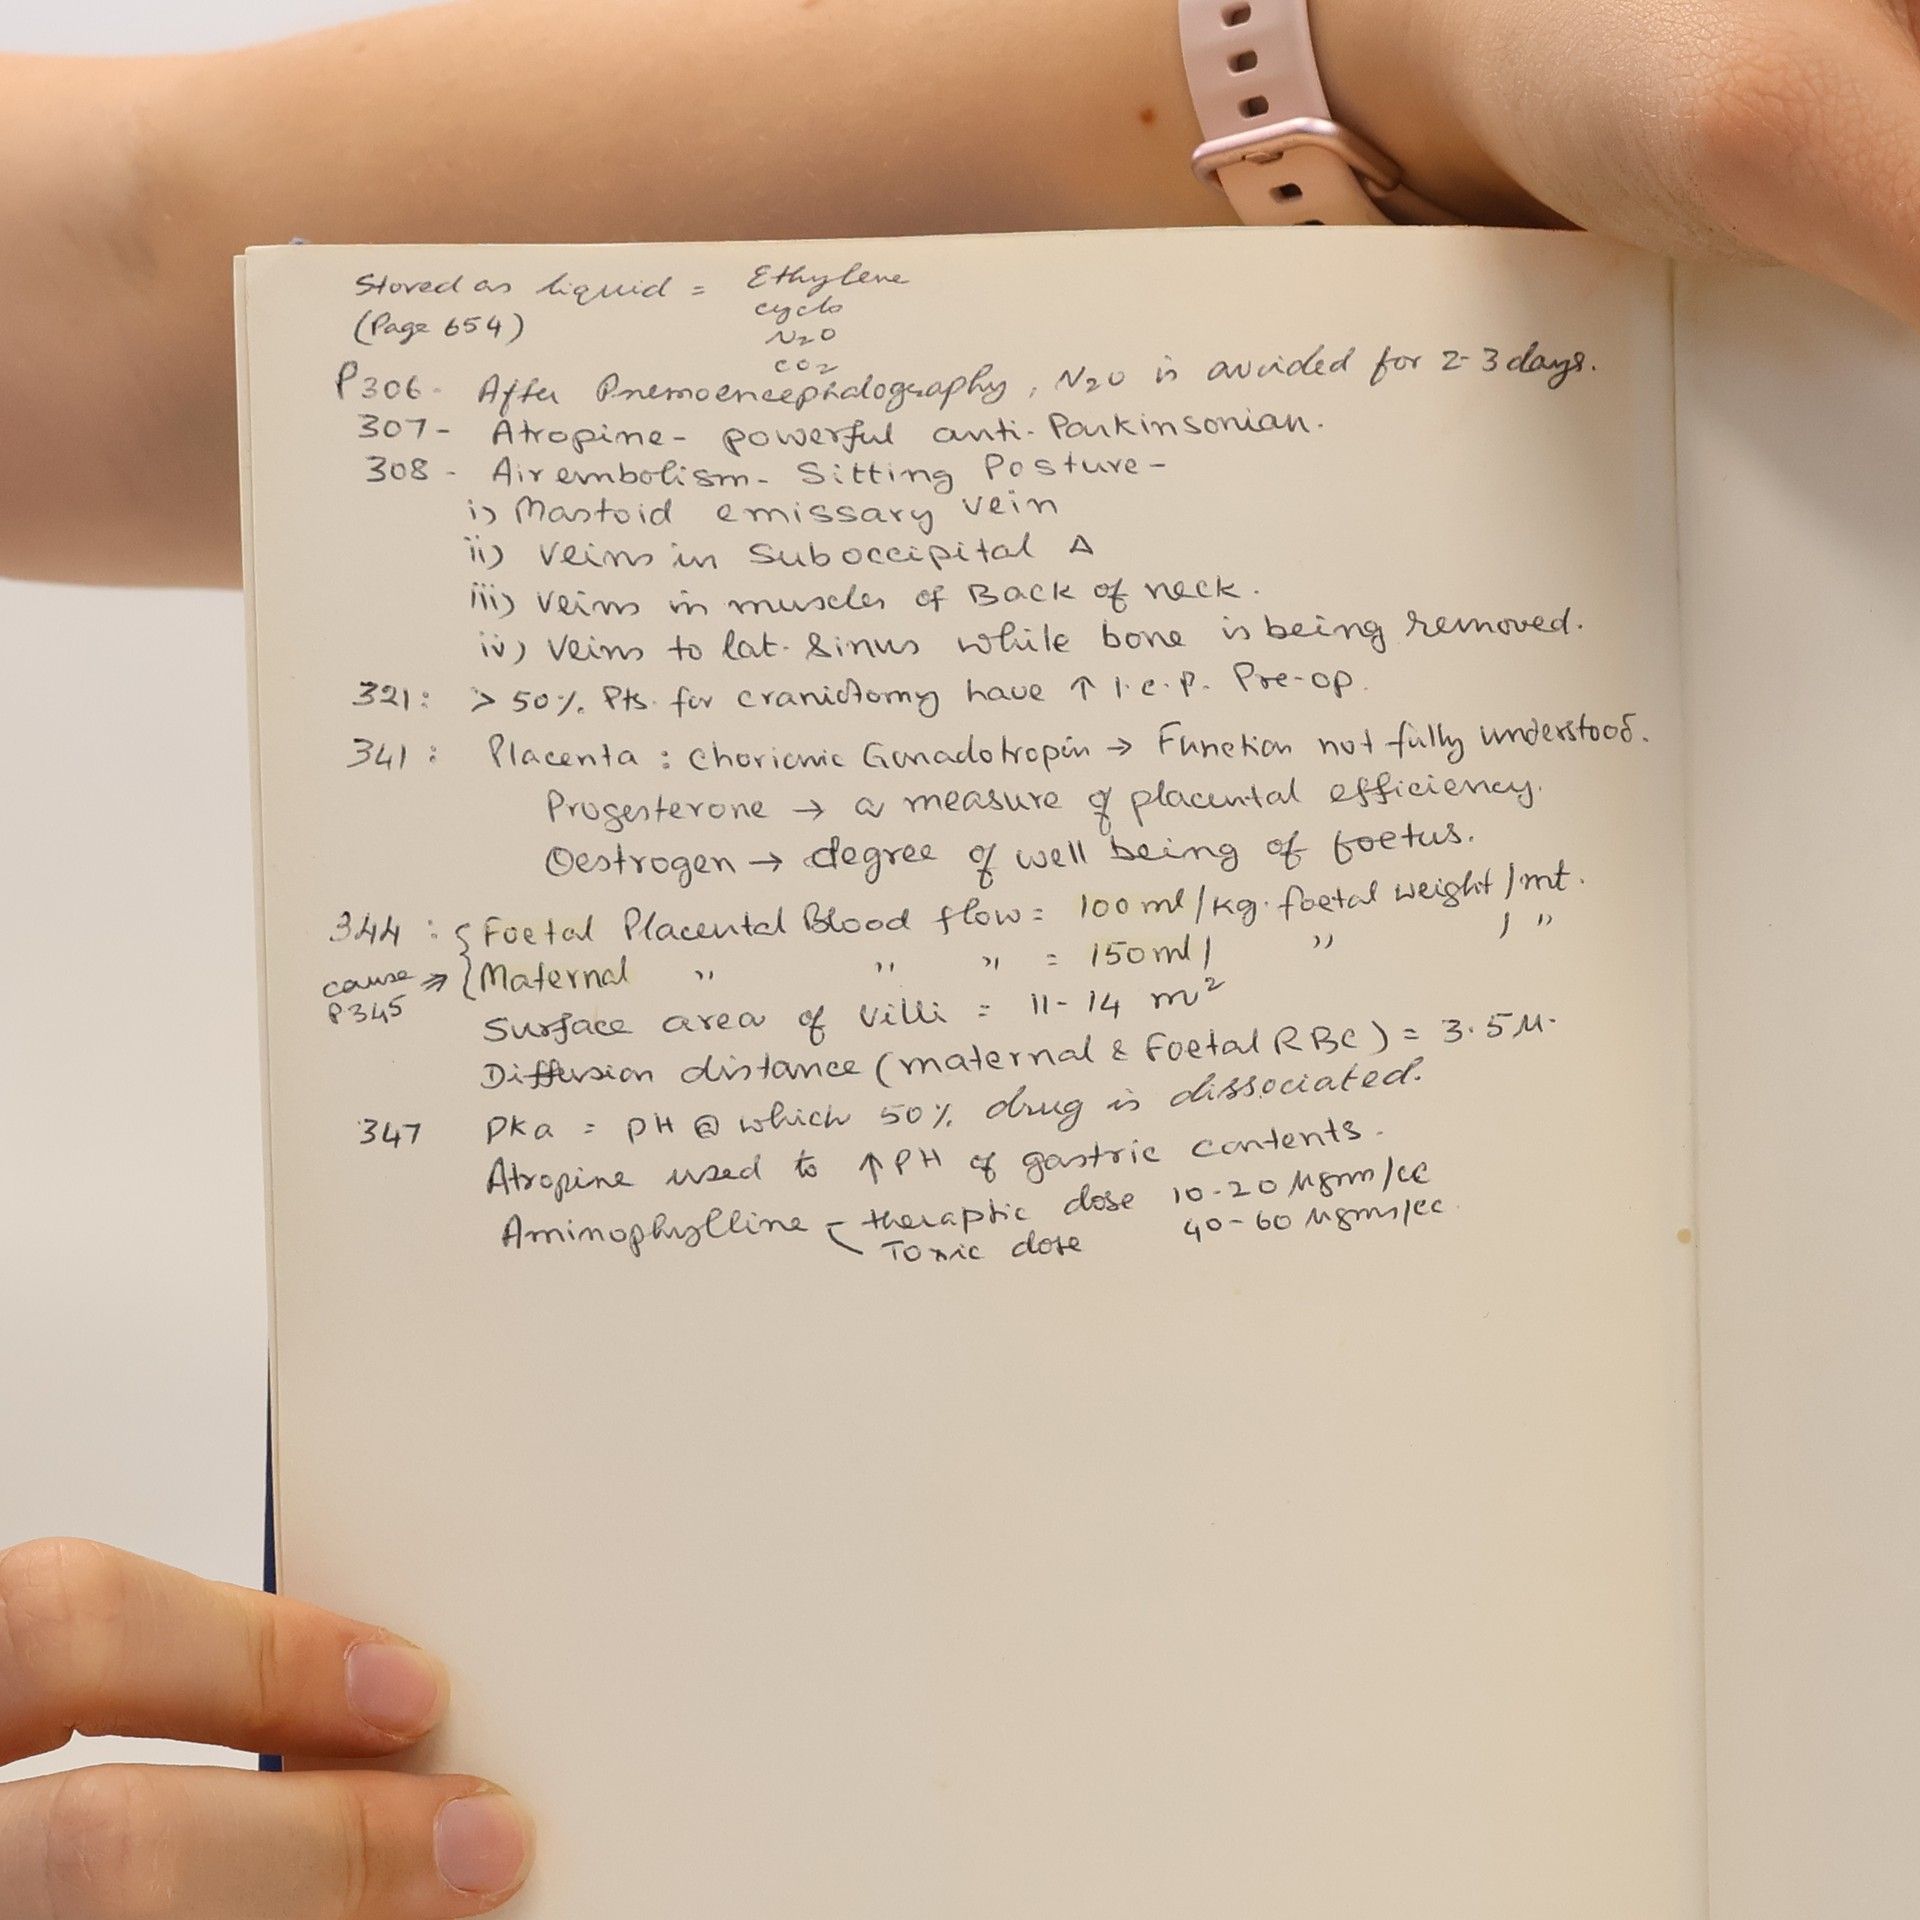 Stored as liquid = Ethylene
(Page 654) cyclo
N₂O
CO₂
P306 - After Pnemoencephalography, N₂O is avoided for 2-3 days.
307 - Atropine - powerful anti-Parkinsonian.
308 - Air embolism - Sitting Posture -
i) Mastoid emissary vein
ii) Veins in Suboccipital Δ
iii) Veins in muscles of Back of neck.
iv) Veins to lat. Sinus while bone is being removed.
321: > 50% Pts. for craniotomy have ↑ I.C.P. Pre-op.
341: Placenta : Chorionic Gonadotropin → Function not fully understood.
Progesterone → a measure of placental efficiency.
Oestrogen → degree of well being of foetus.
344 : { Foetal Placental Blood flow = 100 ml/kg. foetal weight/mt.
cause ⇒ { Maternal " " " = 150 ml/ " / "
P345
Surface area of Villi = 11-14 m²
Diffusion distance (maternal & Foetal RBC) = 3.5 μ.
347 PKa = PH @ which 50% drug is dissociated.
Atropine used to ↑ PH of gastric contents.
Aminophylline - theraptic dose 10-20 μgm/cc
Toxic dose 40-60 μgms/cc.